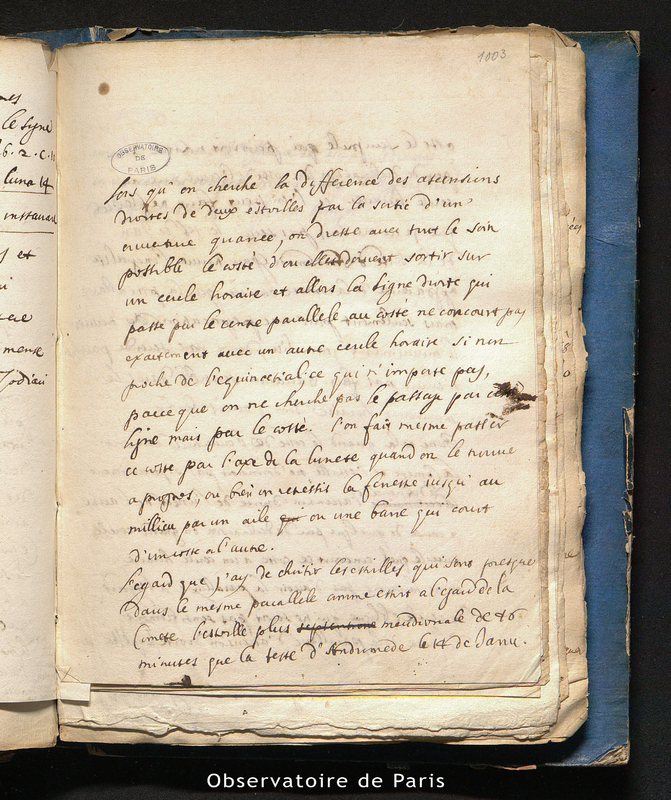 1003
OBSERVATOIRE
DE
PARIS
mes
le signe
luna 14
instavan
et
mense
Zodiaci
Lors qu'on cherche la difference des ascensions
droites de deux estoilles par la sortie d'un
ouverture quarrée, on dresse avec tout le soin
possible le costé d'ou elles doivent sortir sur
un cercle horaire et allors la ligne droite qui
passe par le centre parallele au costé ne concourt pas
exactement avec un autre cercle horaire si non
proche de l'equinoctial, ce qui n'importe pas,
parceque on ne cherche pas le passage par cette
ligne mais par le costé. l'on fait mesme passer
ce costé par l'axe de la lunete quand on le trouve
a propos, ou bien on retressis la fenestre jusqu'au
millieu par un aile qui ou une barre qui court
d'un costé a l'autre.
l'egard que j'ay de choisir les estoilles qui sont presque
dans le mesme parallele comme estoit a l'egard de la
Comete l'estoille plus septentrione meridionale de 16
minutes que la teste d'Andromede le 14 de Janv.
Observatoire de Paris